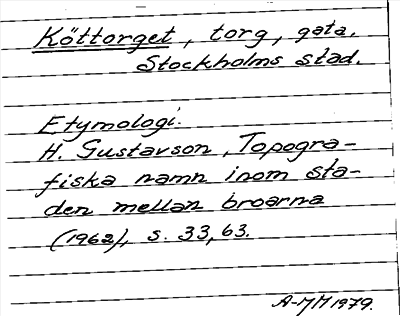 Köttorget, torg, gata.
Stockholms stad.
Etymologi.
H. Gustavson, Topogra-
fiska namn inom sta-
den mellan broarna
(1962), s. 33, 63.
A-MM 1979.